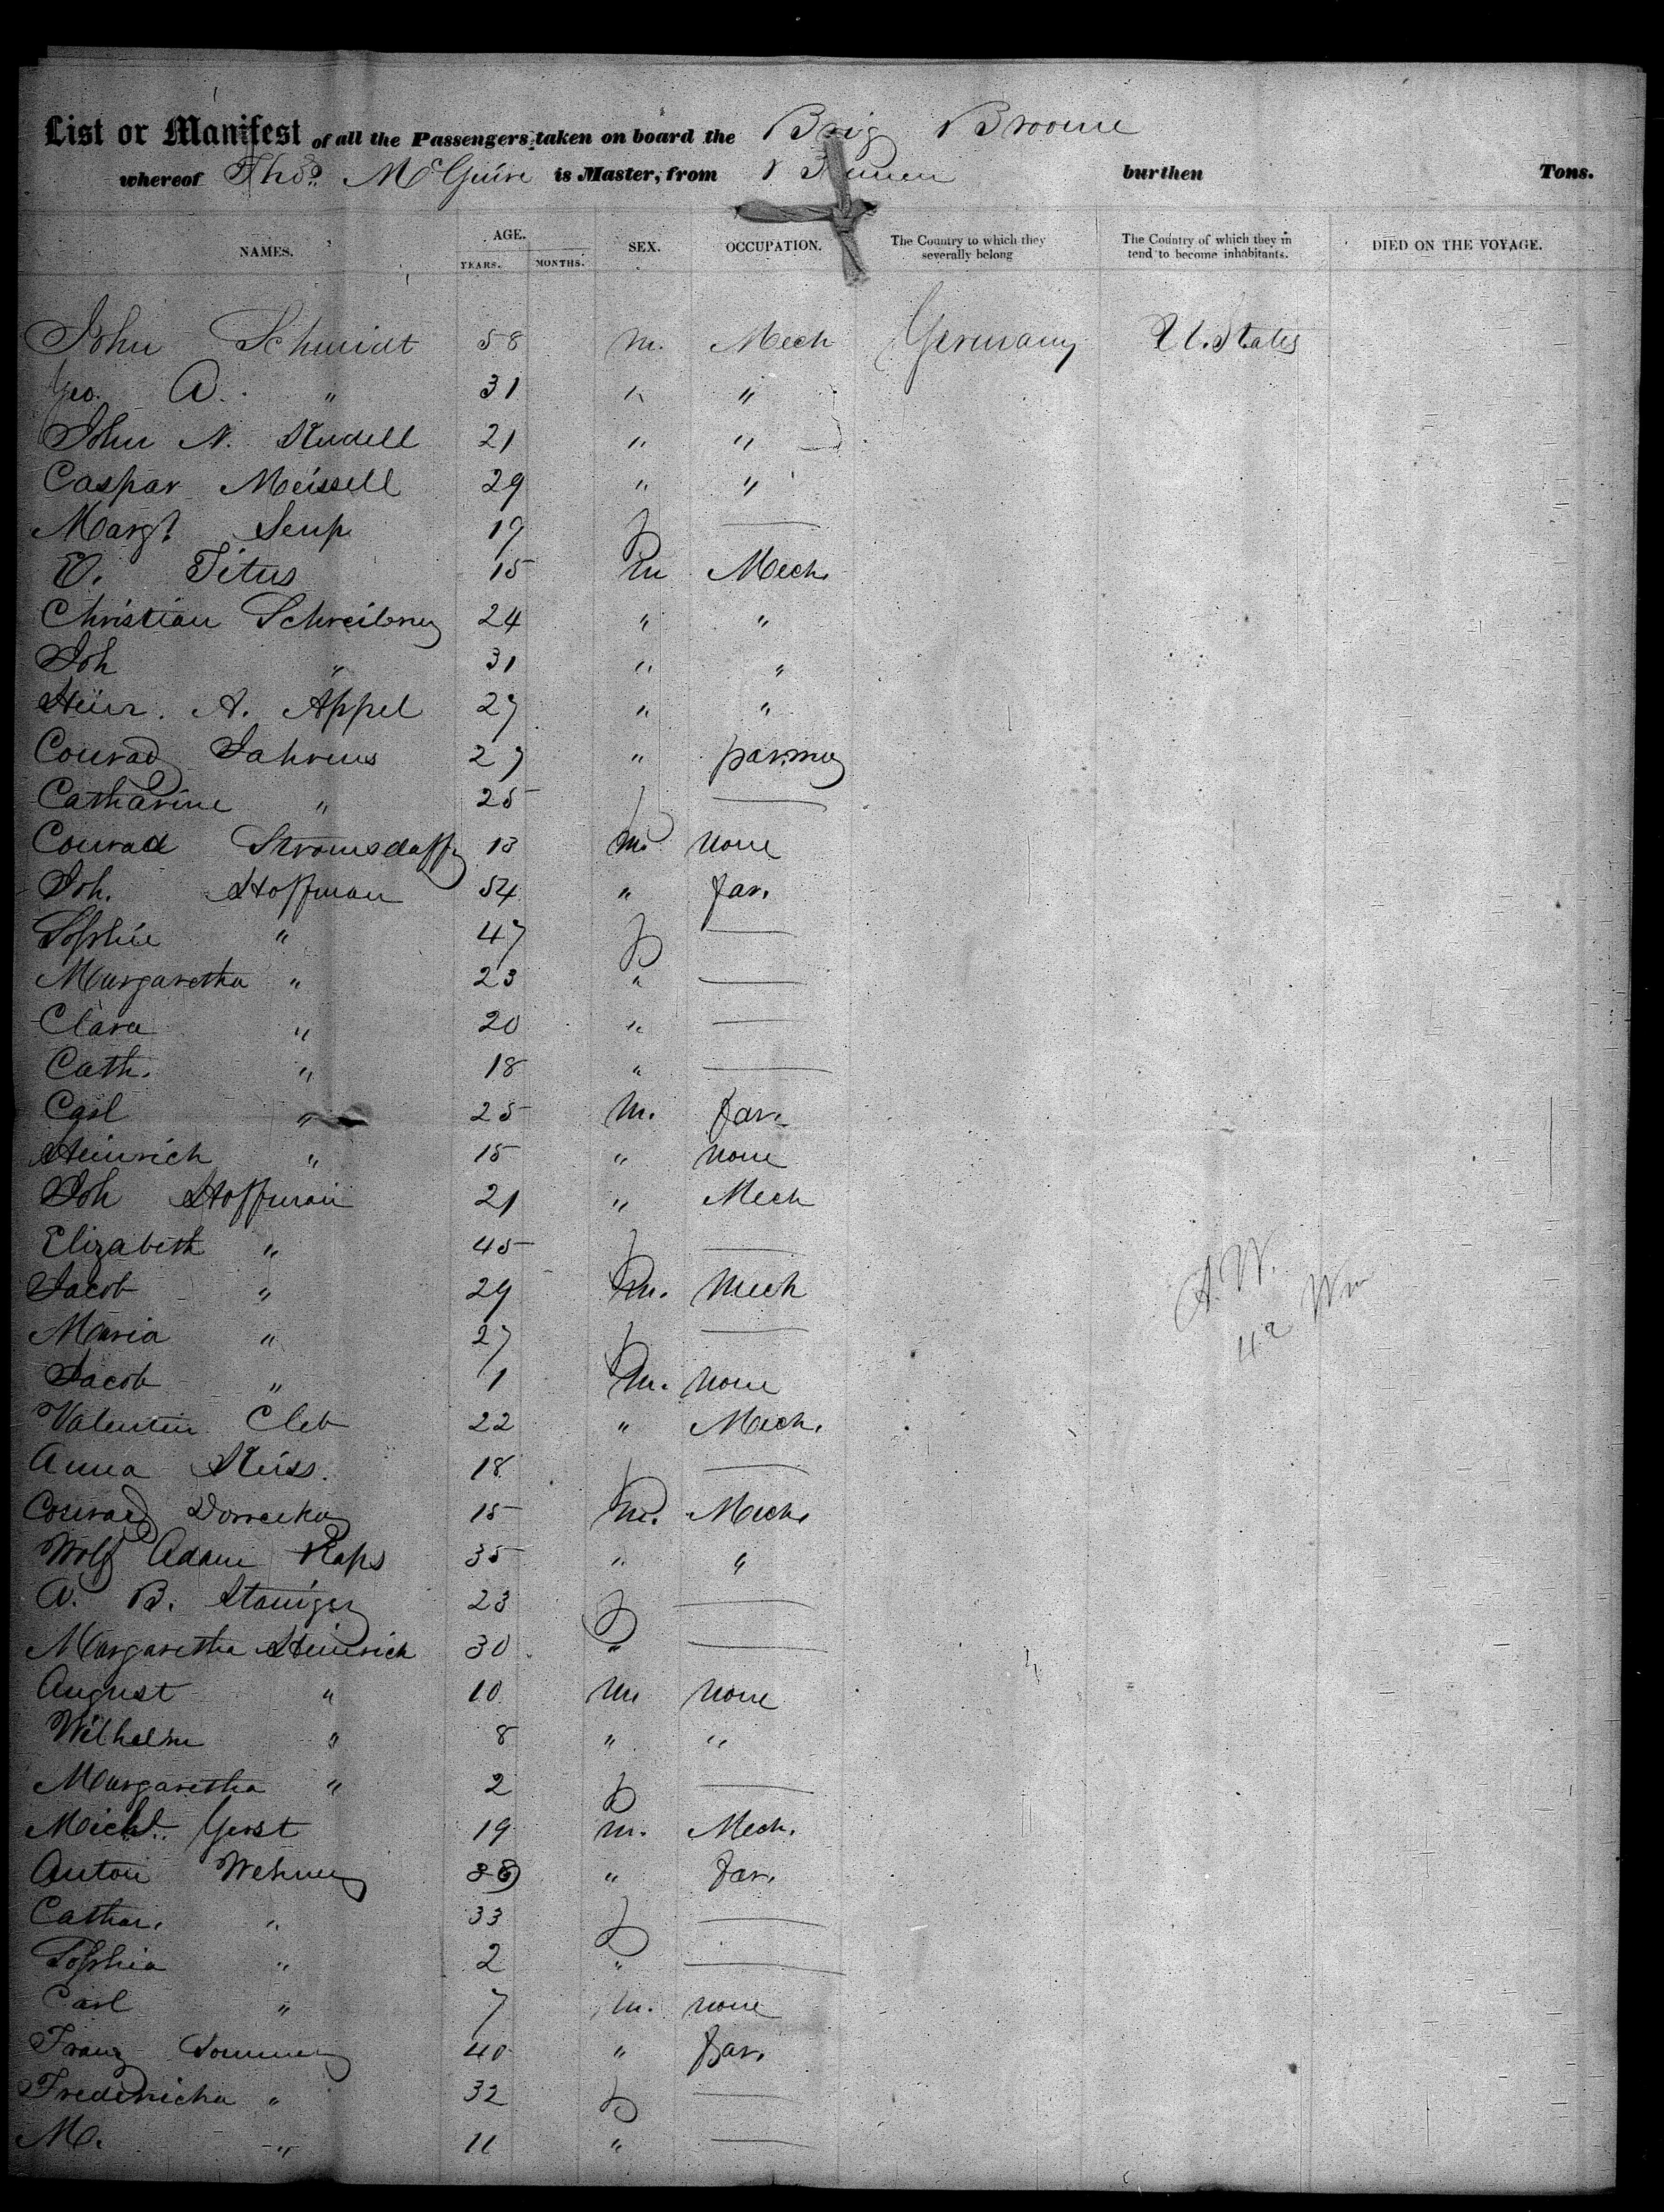 List or Manifest of all the Passengers taken on board the Brig Broome
whereof Thos. McGuire is Master, from Bremen burthen Tons.
NAMES. AGE. YEARS. MONTHS. SEX. OCCUPATION. The Country to which they severally belong The Country of which they in tend to become inhabitants. DIED ON THE VOYAGE.
John Schmidt 58 m. Mech Germany U. States
Geo. A. " 31 " "
John N. 21 " "
Caspar Meissell 29 " "
Margt 19 f —
Titus 15 m Mech.
Christian Schreibner 24 " "
Joh " 31 " "
Heinr. A. Appel 27 " "
Conrad Jahrens 27 " Farmer
Catharine " 25 f —
Conrad 13 m. none
Joh. Hoffman 54 " far.
Sophie " 47 f —
Margaretha " 23 " —
Clara " 20 " —
Cath. " 18 " —
Carl " 25 m. far.
Heinrich " 15 " none
Joh Hoffman 21 " Mech
Elizabeth " 45 f —
Jacob " 29 m. Mech
Maria " 27 f —
Jacob " 1 m. none
Valentin Cleb 22 " Mech.
Anna 18 f —
Conrad 15 m. Mech.
Wolf Adam Raps 35 " "
A. B. Staniger 23 f —
Margaretha Heinrich 30 " —
August " 10 m none
Wilhelm " 8 " "
Margaretha " 2 f —
Michl. Gerst 19 m. Mech.
Anton Wehner 38 " far.
Cathar. " 33 f —
Sophia " 2 " —
Carl " 7 m. none
Franz Sommer 40 " far.
Fredericka " 32 f —
M. " 11 " —
A. W.